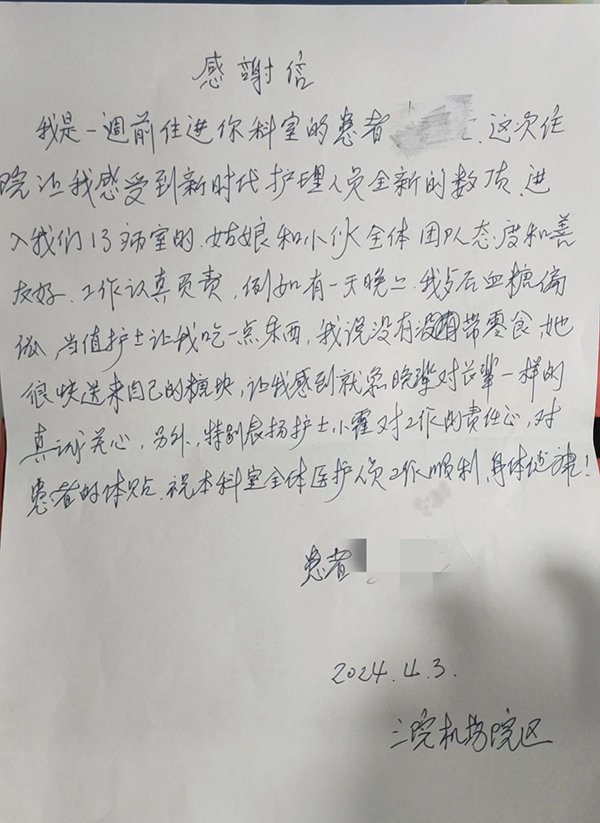 感謝信
我是一週前住进你科室的患者 这次住
院让我感受到新时代护理人员全新的数项.进
入我们13病室的.姑娘和小伙全体团队态度和善
友好.工作认真负责,例如有一天晚上.我占后血糖偏
低,当值护士让我吃一点东西,我说没有没有带零食,她
很快送来自己的糖块,让我感到就象晚辈对长辈一样的
真诚关心,另外,特别表扬护士小霍对工作的责任心,对
患者的体贴.祝本科室全体医护人员工作顺利,身体健康!
患者
2024.4.3.
三院机场院区